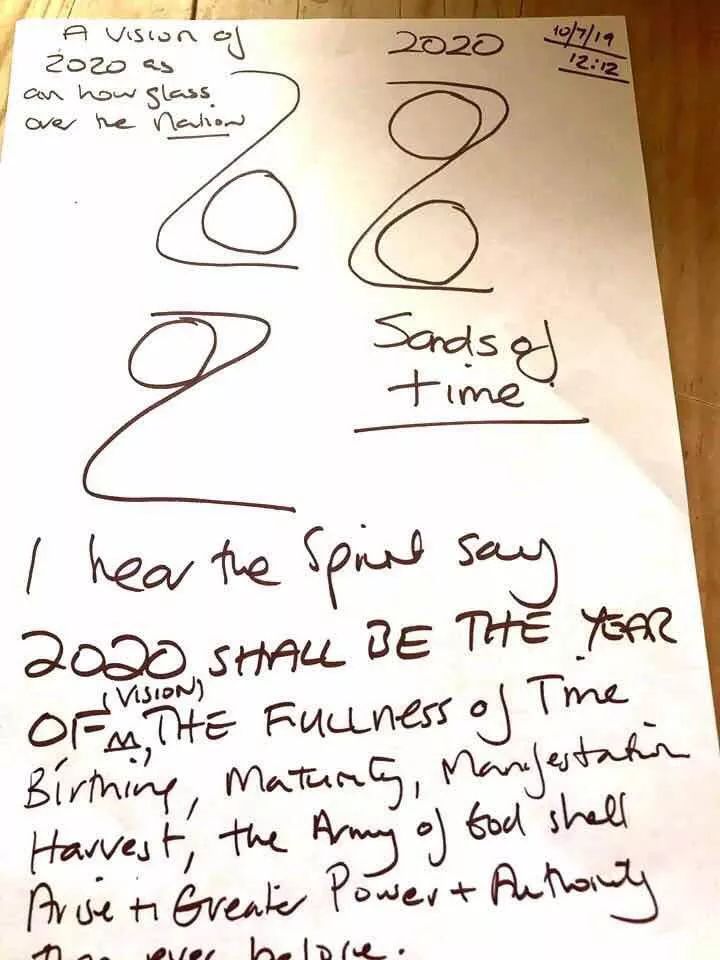 A Vision of
2020 as
an hour glass
over the Nation
2020
10/7/19
12:12
Sands of
time
I hear the Spirit say
2020 SHALL BE THE YEAR
(VISION)
OF, THE FULLNESS of Time
Birthing, Maturity, Manifestation
Harvest, the Army of God shall
Arise in Greater Power + Authority
than ever before.